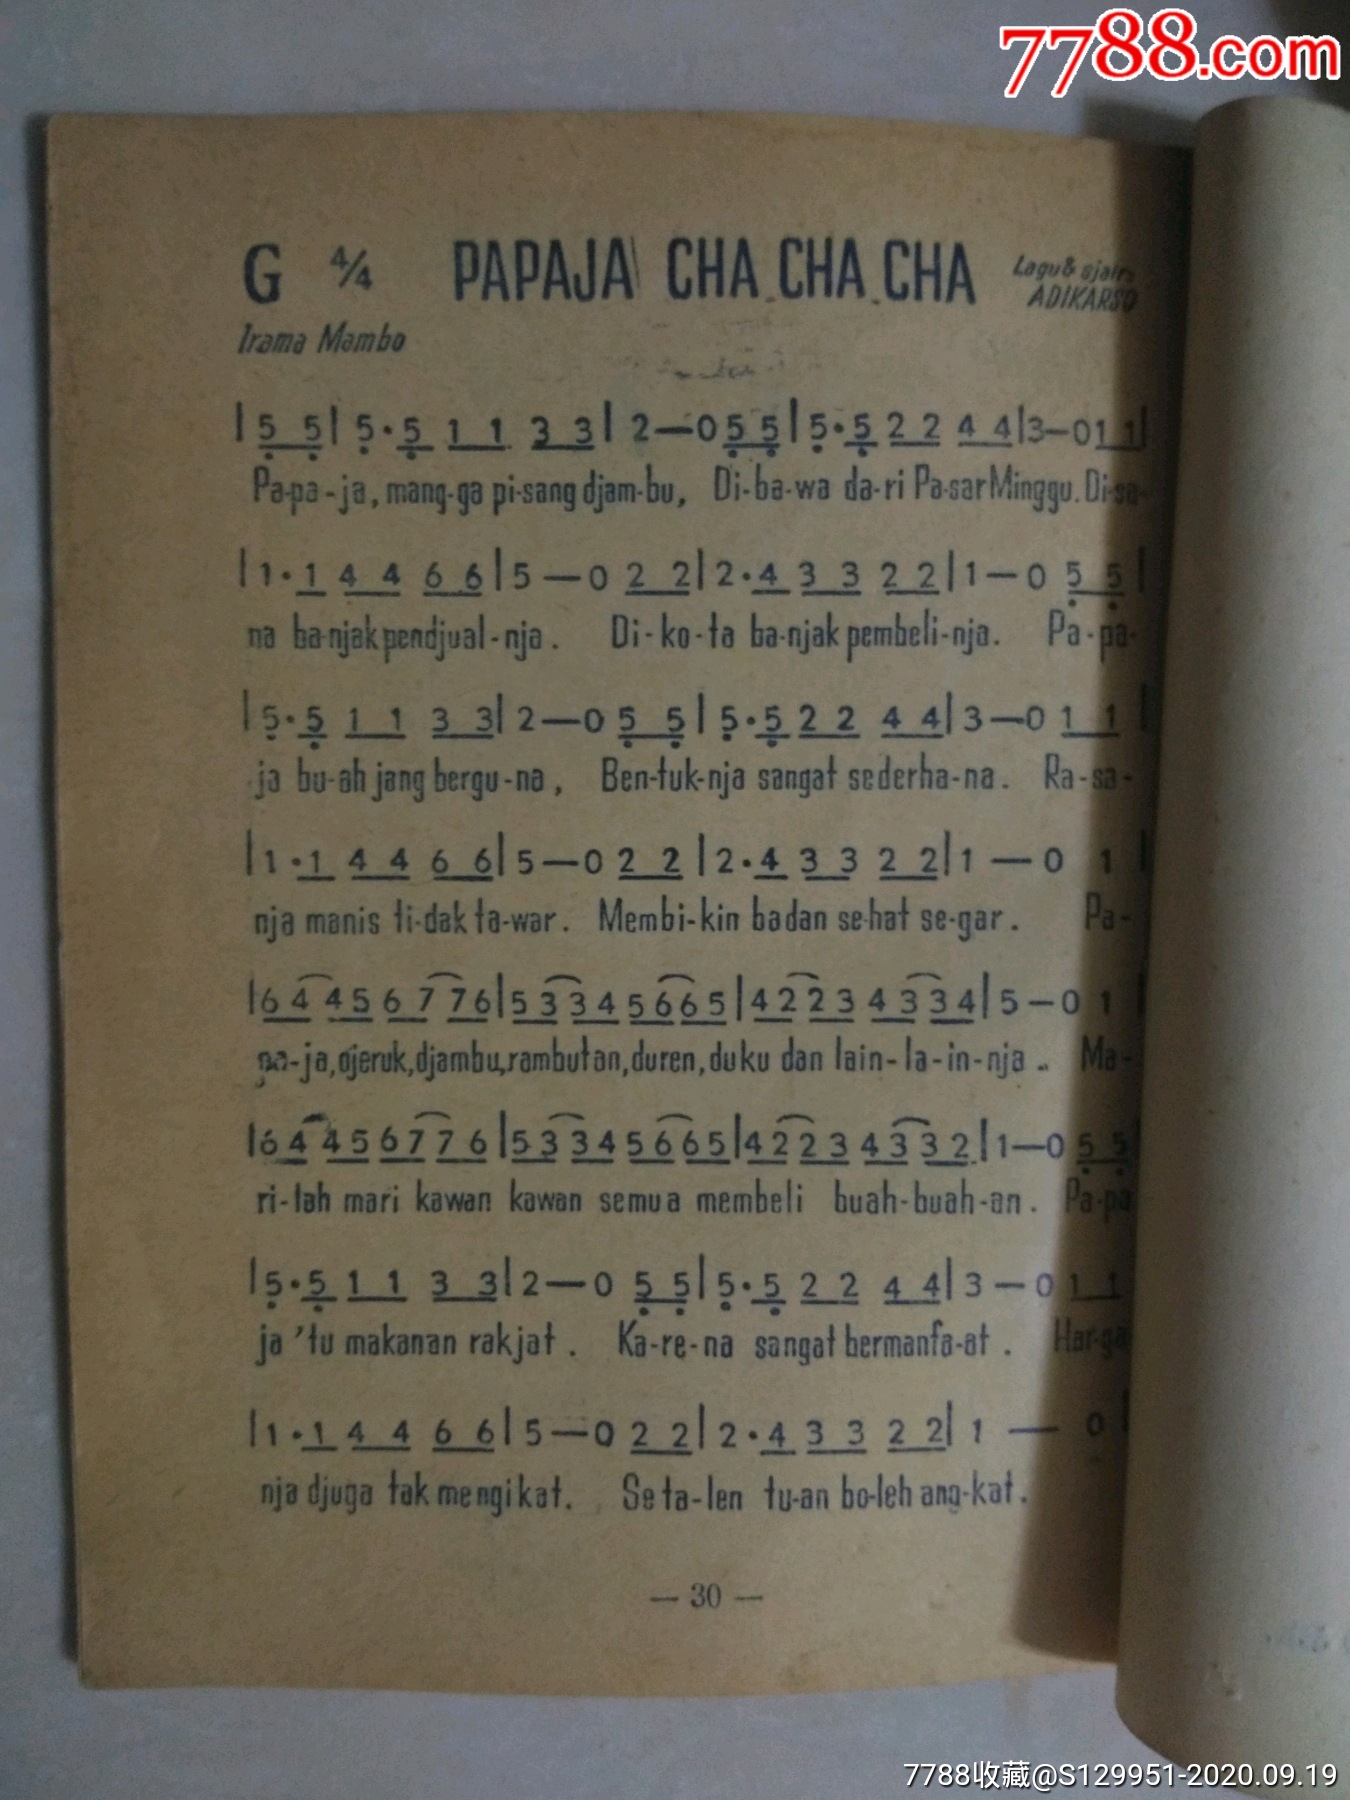 7788.com
G 4/4 PAPAJA CHA CHA CHA Lagu & sjair:
ADIKARSO
Irama Mambo
| 5 5 | 5 . 5 1 1 3 3 | 2 — 0 5 5 | 5 . 5 2 2 4 4 | 3 — 0 1 1 |
Pa-pa-ja, mang-ga pi-sang djam-bu, Di-ba-wa da-ri Pa-sar Minggu. Di-sa-
| 1 . 1 4 4 6 6 | 5 — 0 2 2 | 2 . 4 3 3 2 2 | 1 — 0 5 5 |
na ba-njak pendjual-nja. Di-ko-ta ba-njak pembeli-nja. Pa-pa-
| 5 . 5 1 1 3 3 | 2 — 0 5 5 | 5 . 5 2 2 4 4 | 3 — 0 1 1 |
ja bu-ah jang bergu-na, Ben-tuk-nja sangat sederha-na. Ra-sa-
| 1 . 1 4 4 6 6 | 5 — 0 2 2 | 2 . 4 3 3 2 2 | 1 — 0 1 |
nja manis ti-dak ta-war. Membi-kin badan se-hat se-gar. Pa-
| 6 4 4 5 6 7 7 6 | 5 3 3 4 5 6 6 5 | 4 2 2 3 4 3 3 4 | 5 — 0 1 |
pa-ja, djeruk, djambu, rambutan, duren, duku dan lain-la-in-nja.. Ma-
| 6 4 4 5 6 7 7 6 | 5 3 3 4 5 6 6 5 | 4 2 2 3 4 3 3 2 | 1 — 0 5 5
ri-lah mari kawan kawan semua membeli buah-buah-an. Pa-pa
| 5 . 5 1 1 3 3 | 2 — 0 5 5 | 5 . 5 2 2 4 4 | 3 — 0 1 1
ja 'tu makanan rakjat. Ka-re-na sangat bermanfa-at. Har-ga
| 1 . 1 4 4 6 6 | 5 — 0 2 2 | 2 . 4 3 3 2 2 | 1 — 0 |
nja djuga tak mengikat. Se ta-len tu-an bo-leh ang-kat.
— 30 —
7788收藏@S129951-2020.09.19